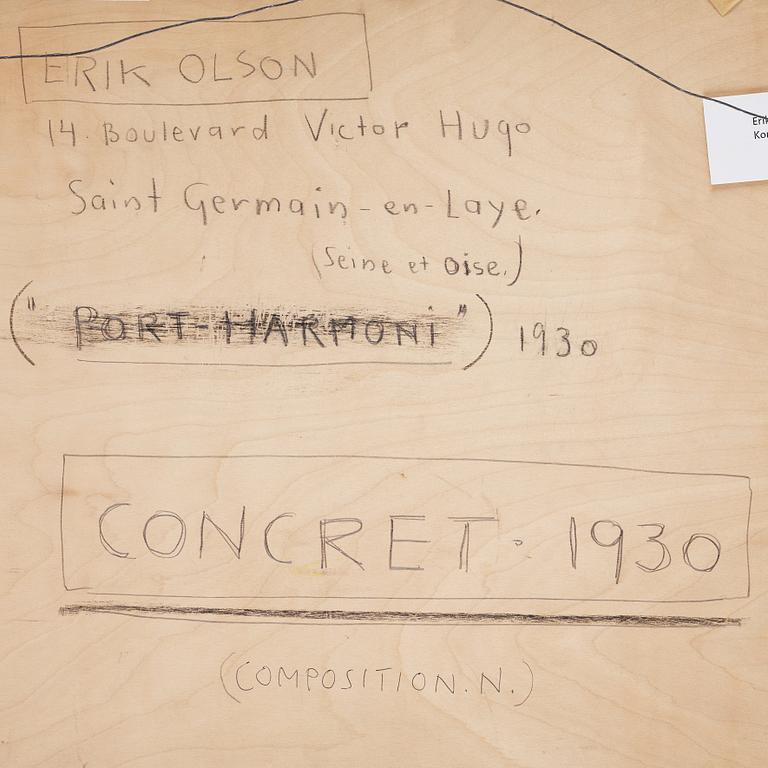 ERIK OLSON
14. Boulevard Victor Hugo
Saint Germain-en-Laye.
(Seine et Oise.)
("PORT-HARMONI") 1930
CONCRET: 1930
(COMPOSITION. N.)